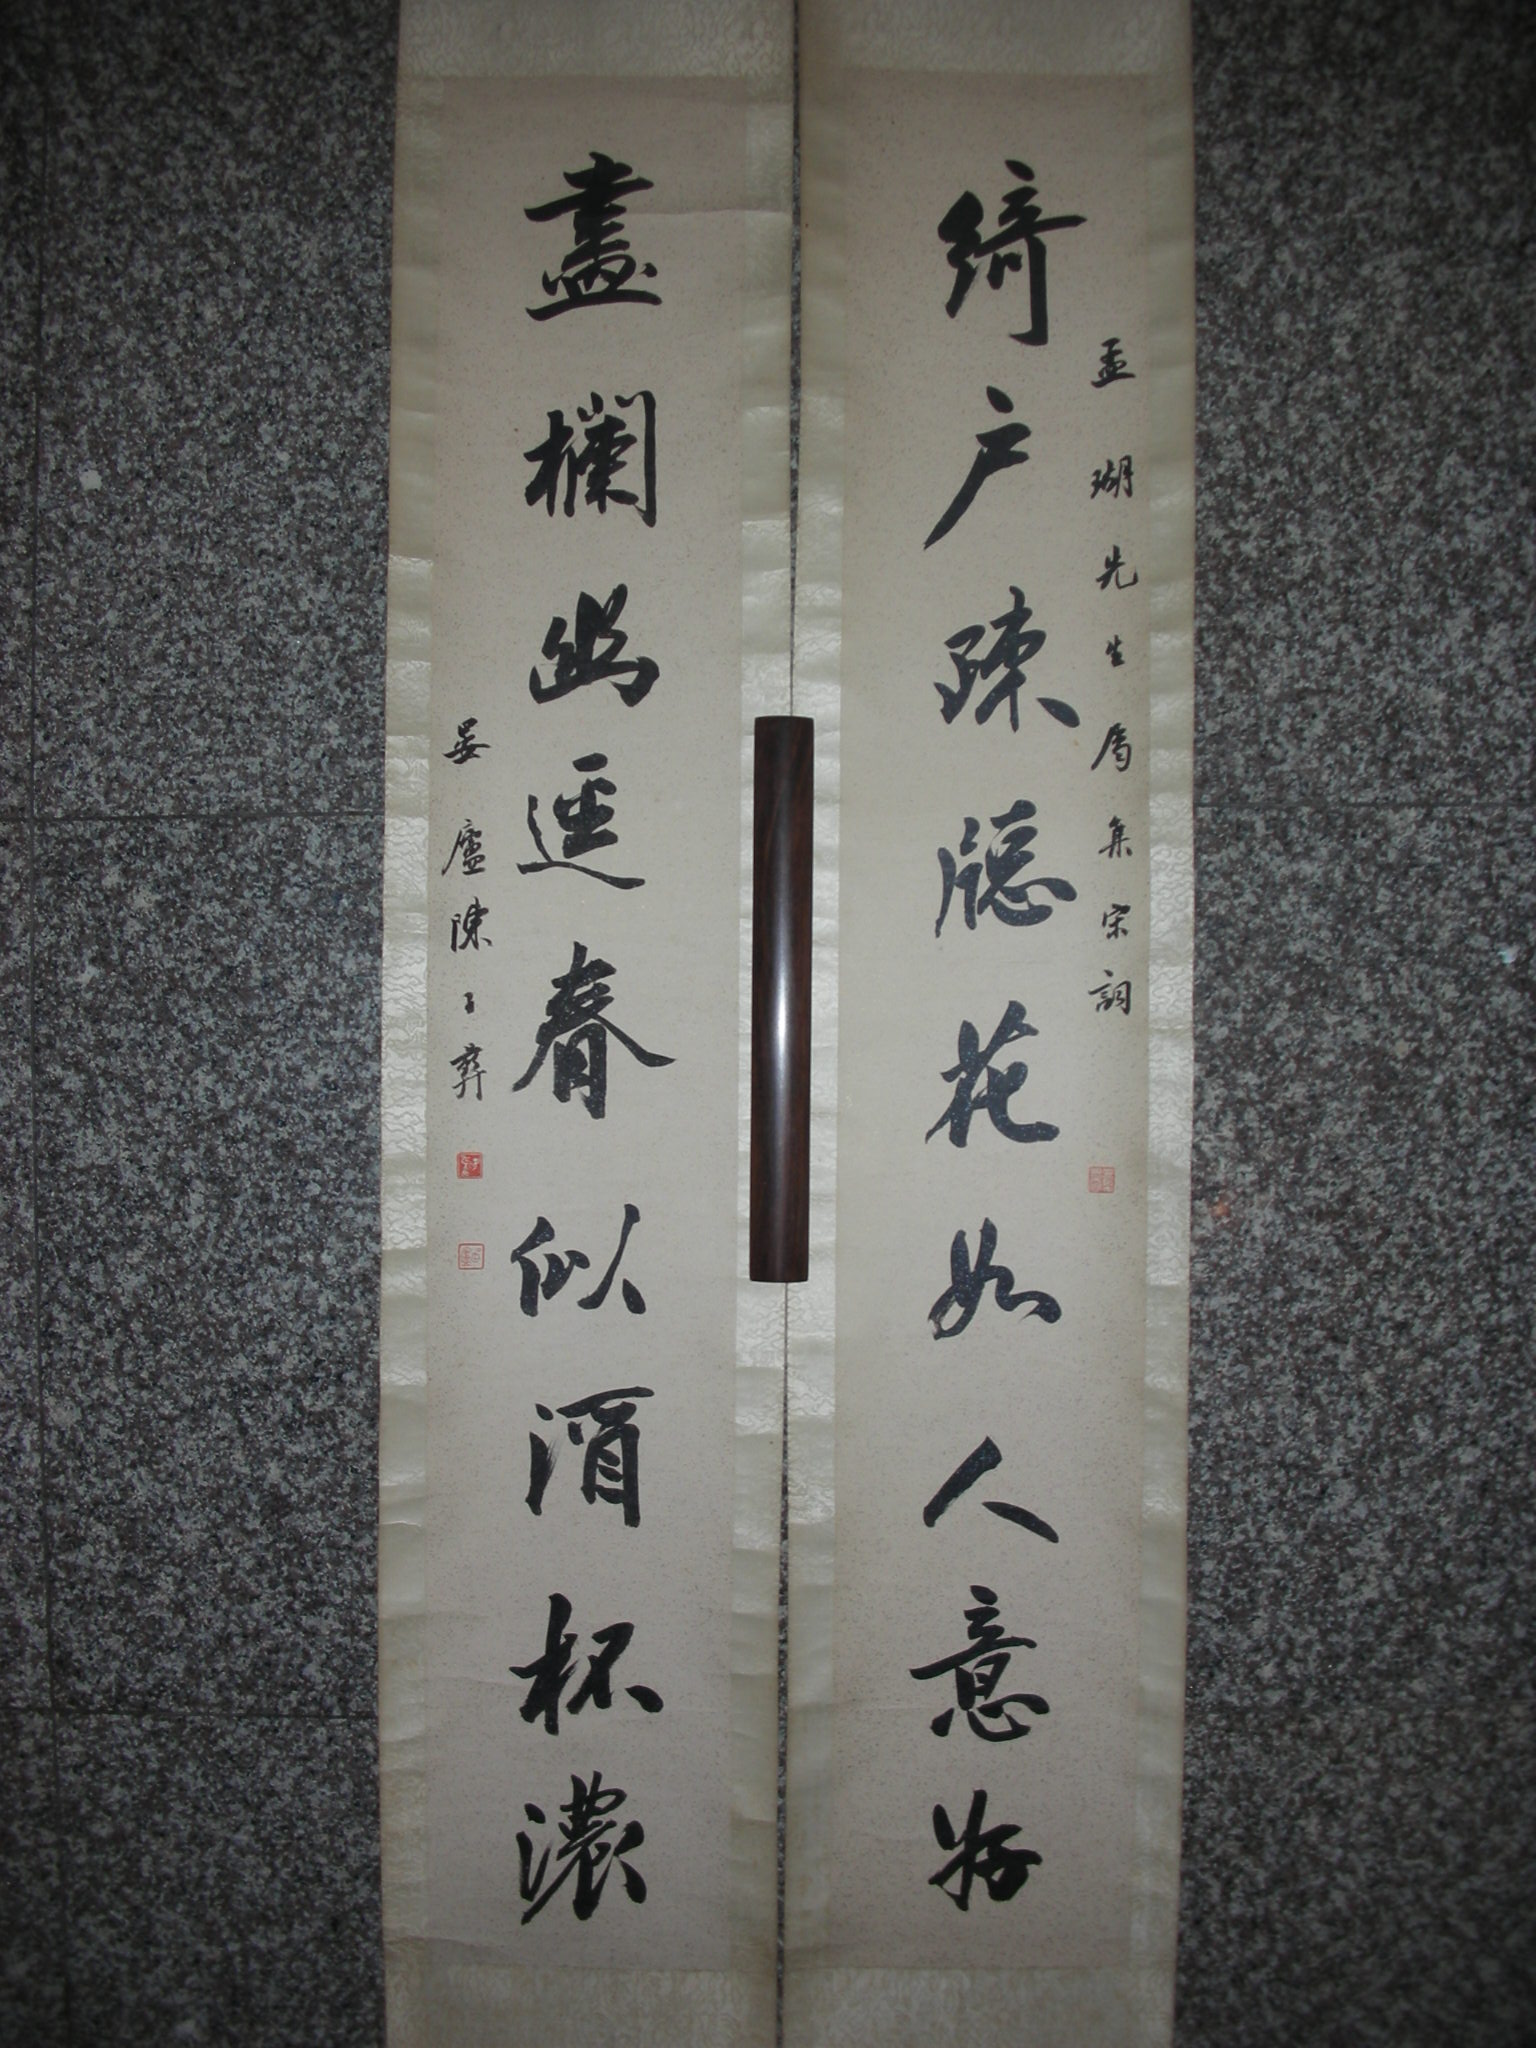 綺户疎牕花如人意好
孟瑚先生屬集宋詞
畫欄幽逕春似酒杯濃
晏廬陳子彝